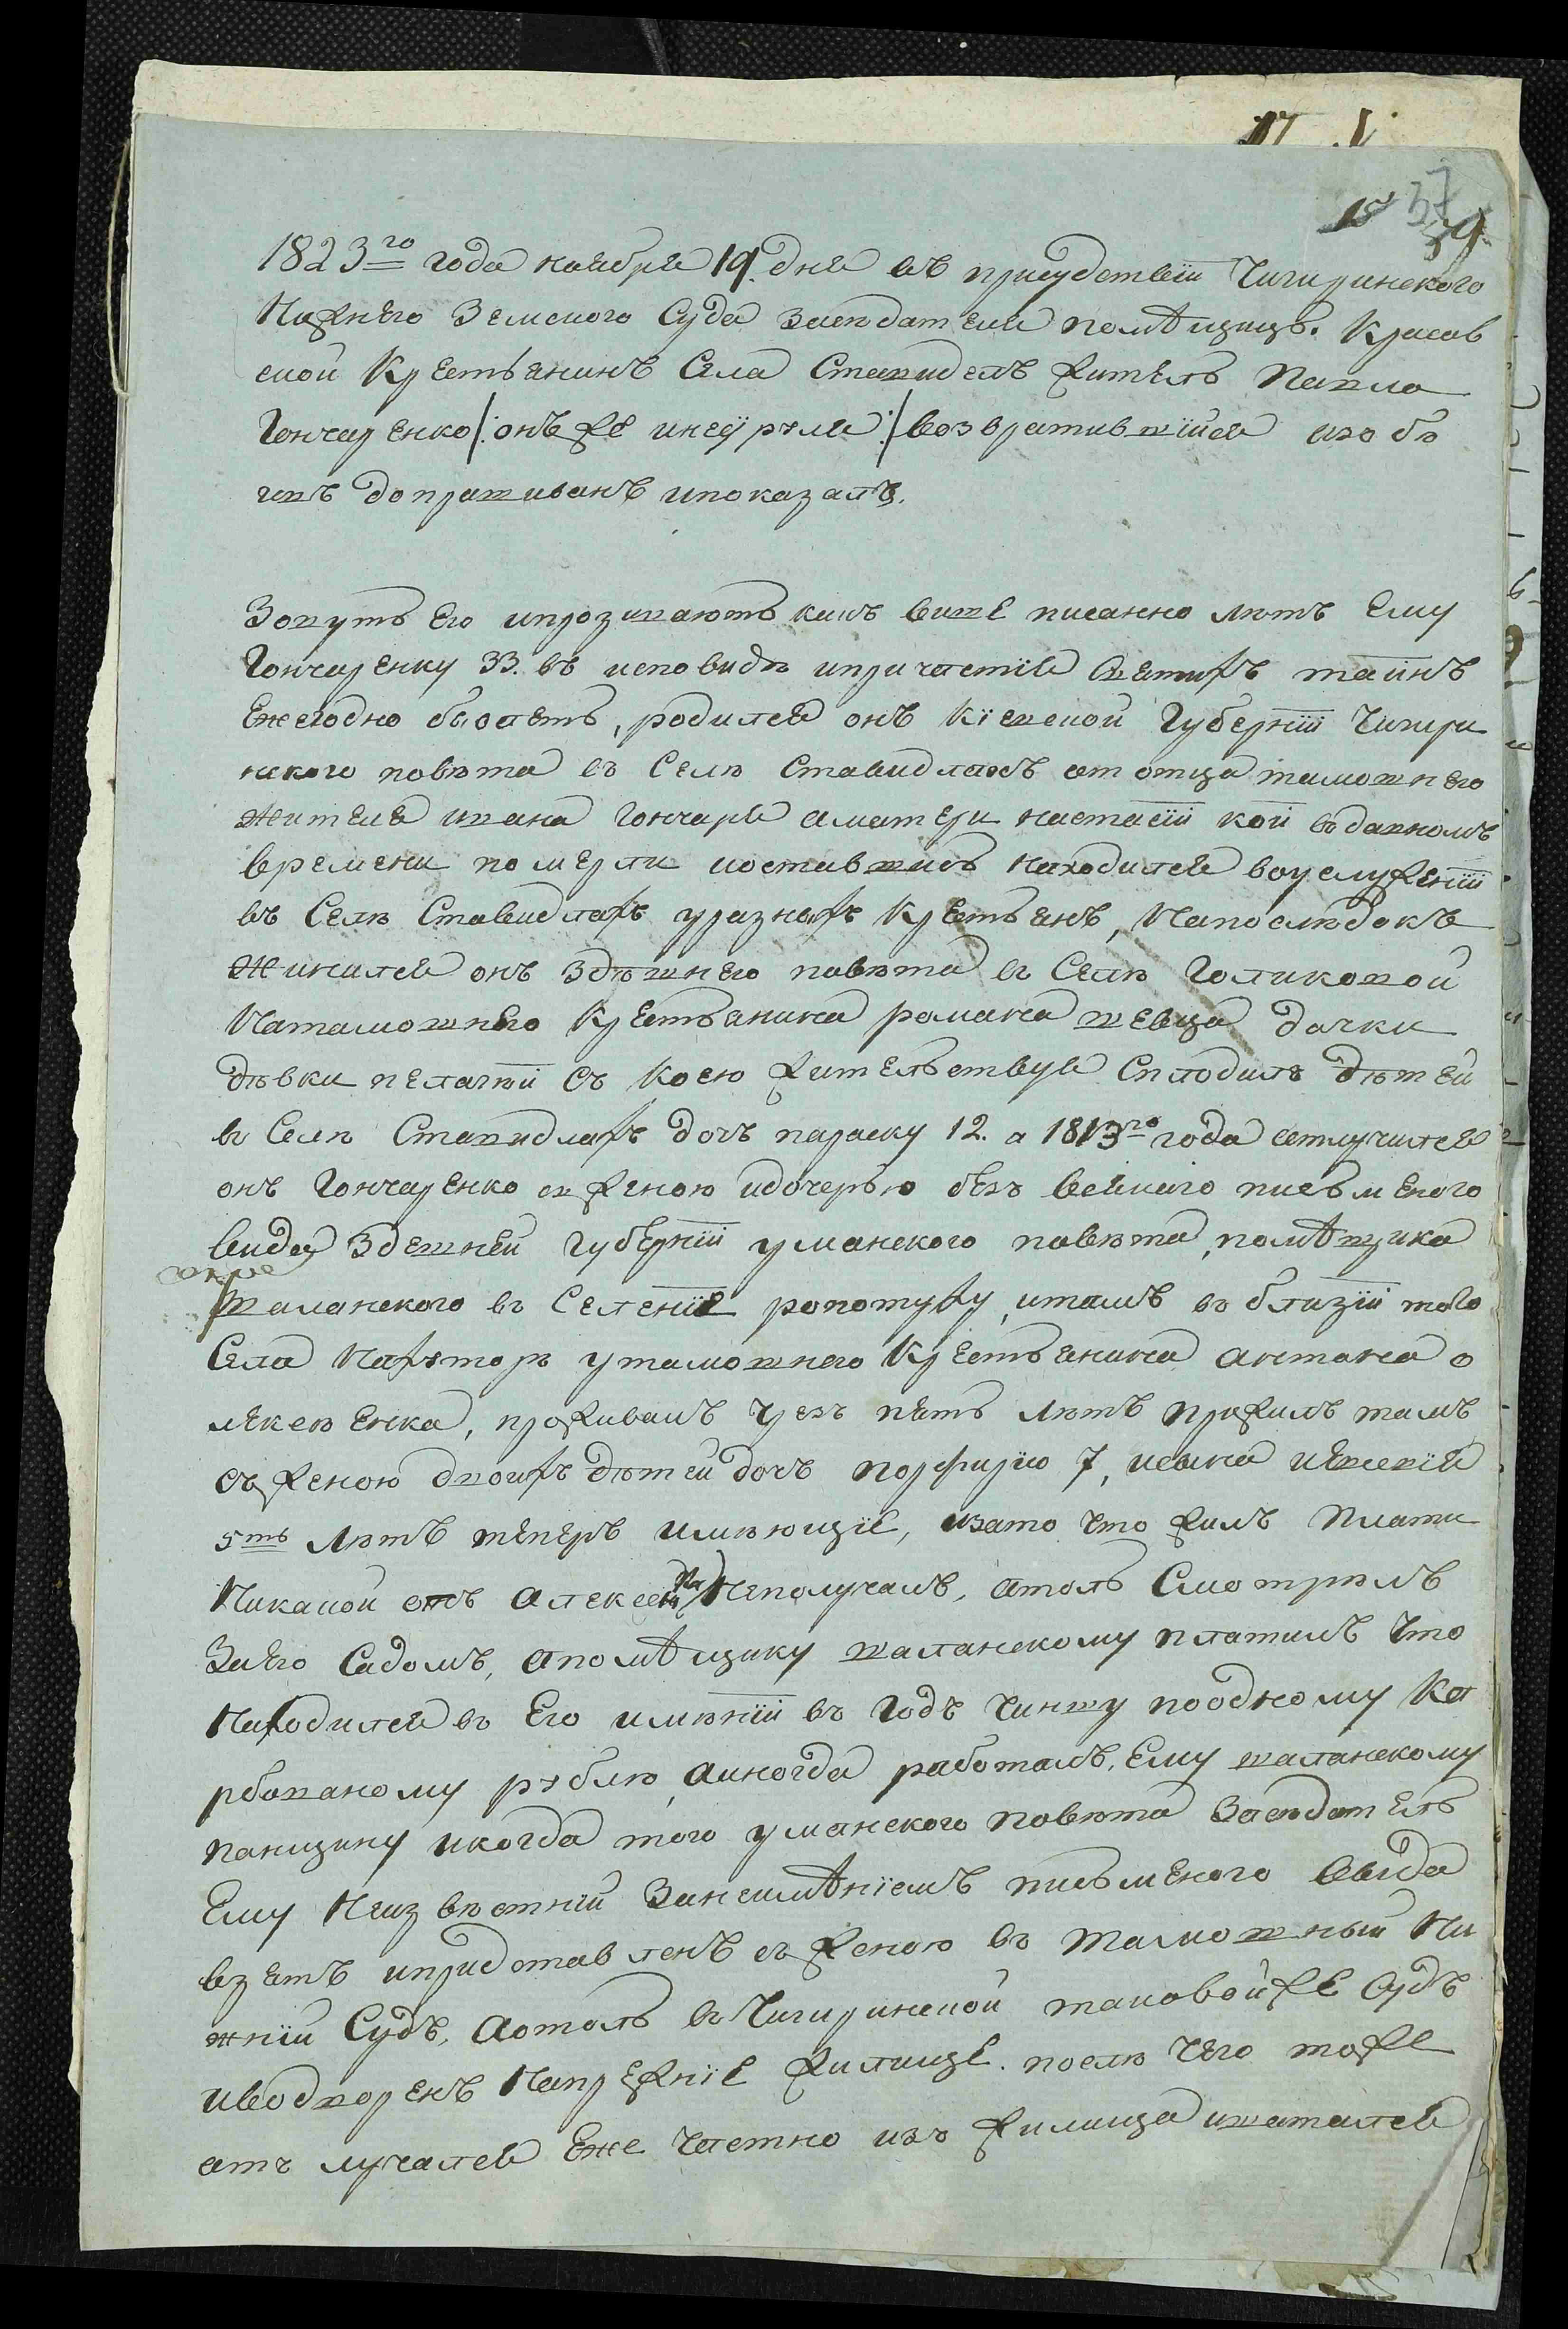 37
39
1823го года ноября 19. дня въ присудствіи Чигиринского
Нижнего Земского Суда заседателя помѣщицъ. Красов
ской Крестьянинъ Села Ставидель житель Павло
Гончаренко /: онъ же :/ возвратившійся изъ бе
гив допрашиванъ ипоказалъ.
Зовутъ его ипрозиваютъ какъ више писанно лѣтъ ему
Гончаренку 33. въ исповидѣ ипричастія Святихъ таинъ
ежегодно бываетъ, родился онъ Кіевской Губерніи Чигири
нского повѣта въ Селѣ Ставидлахъ отъ отца тамошнего
жителя ивана Гончаря аматери настасіи кои вдавномъ
времени померли иоставшись находился воуслуженіи
въ Селѣ Ставидлахъ уразнихъ Крестьянъ, Напослѣдокъ
женился онъ здѣшнего повѣта въ Селѣ Голиковой
Натамошнего Крестьянина романа шевца дочки
дѣвки пелагѣи съ коею жительствуя Сплодилъ дѣтей
въ Селѣ Ставидлахъ дочъ параску 12. а 1813го года отлучился
онъ Гончаренко зженою идочерью безъ всякаго писменого
вида здешней губерніи уманского повѣта, помѣщика
шаланского въ Селеніе ропотуху, итамъ въ близіи того
Села Нахуторѣ утамошнего Крестьянина антона о
лексеенка, проживалъ чрезъ пять лѣтъ прижилъ тамъ
съ женою двоихъ дѣтей дочъ порфирію 7, исына иевсевія
5ть лѣтъ теперъ имѣющіе, изато что жилъ Плати
Никакой отъ алексеенка Неполучалъ, атоль Смотрелъ
заего Садомъ, апомѣщику шаланскому платилъ что
Находился въ Его имѣніи въ годъ Чиншу поодному ка
рбованому рублю, аиногда работалъ, Ему шаланскому
панщину икогда того уманского повѣта Заседатель
Ему Неизвѣстній Занеимѣніемъ письменого вида
взятъ ипридставленъ съ женою въ тамошный Ни
жній Судъ, аотоль въ Чигиринской таковойже Судъ
иводворенъ Напрежніе жилище. после чего тоже
отълучался еже частно изъ жилища ишатался